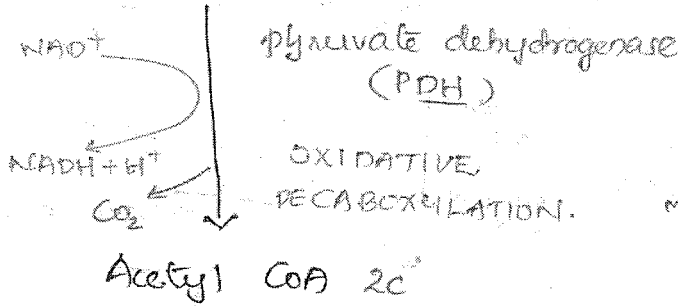 NAD+
pyruvate dehydrogenase
(PDH)
NADH+H+
OXIDATIVE
CO2
DECABOXYLATION.
Acetyl CoA 2C